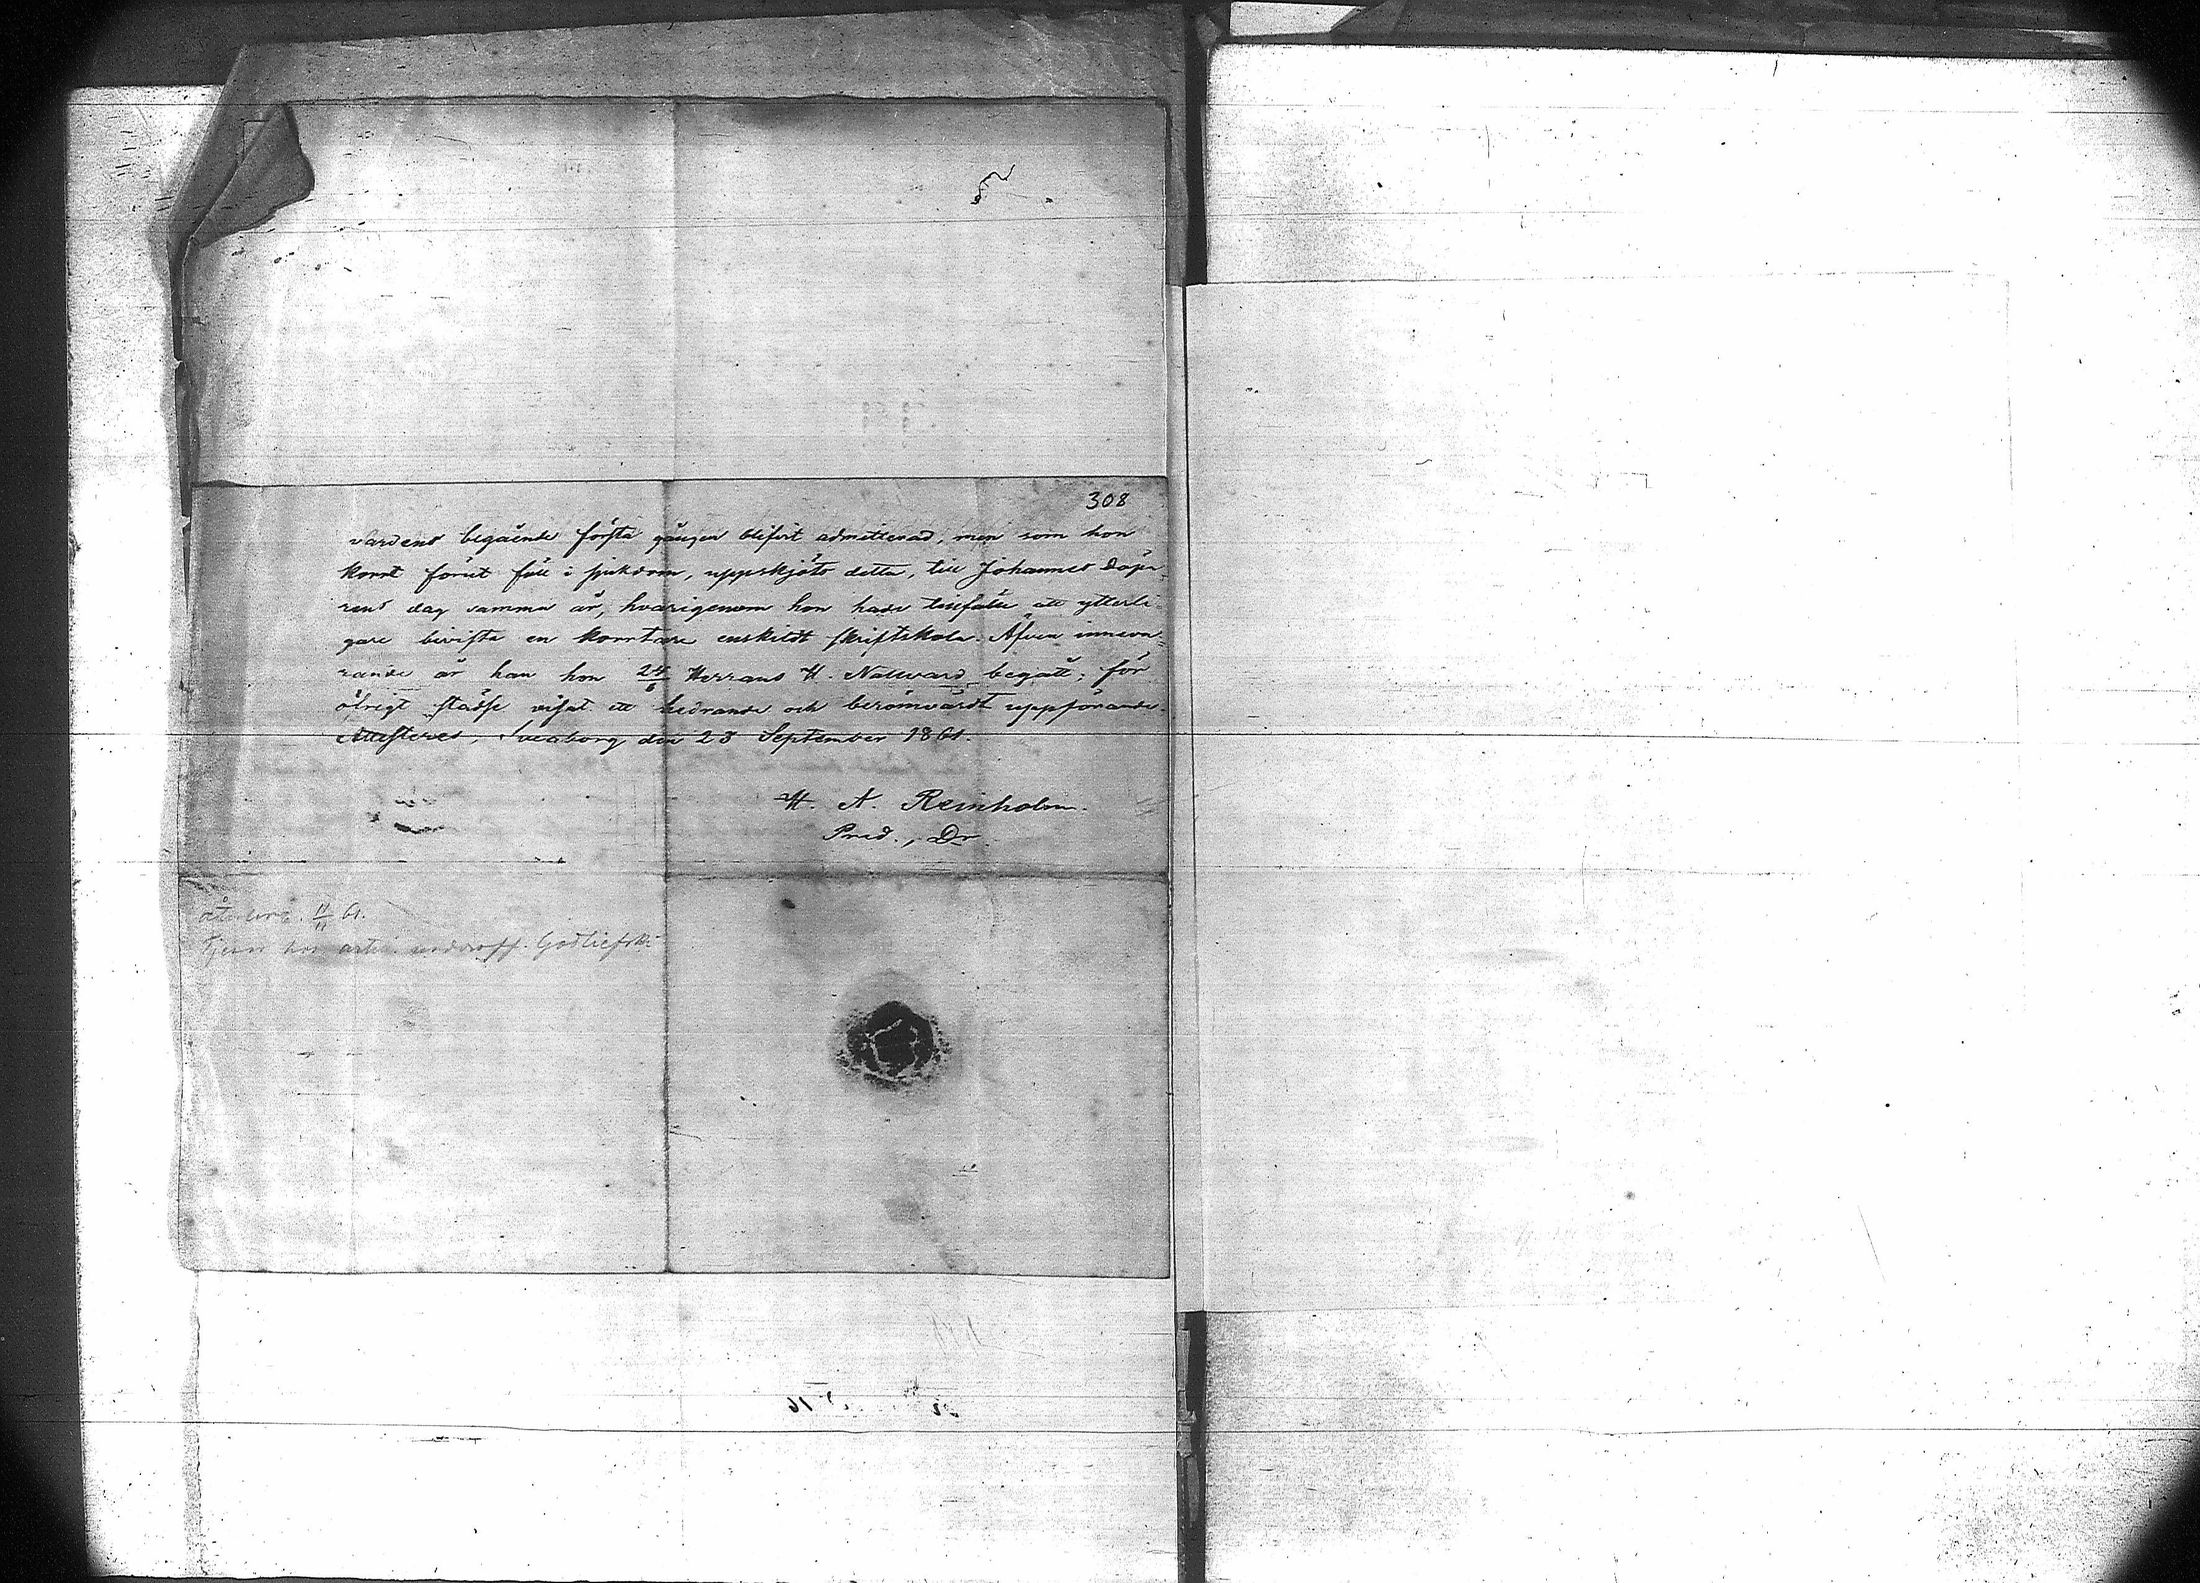 308
vardens begående första gången blifvit admitterad, men som hon
kort förut föll i sjukdom, uppskjöts detta, till Johannes Döpa-
rens dag samma år, hvarigenom hon hade tillfälle att ytterli-
gare bevista en kortare enskildt skriftskola. Äfven inneva-
rande år han hon 24/6 Herrans H. Nattvard begått; för
öfrigt städse visat ett hedrande och berömvärdt uppförande.
Attesteres, Sveaborg den 23 September 1861.
H. A. Reinholm.
Pred., Dr.
11/11 61.
Tjenar hos underoff.